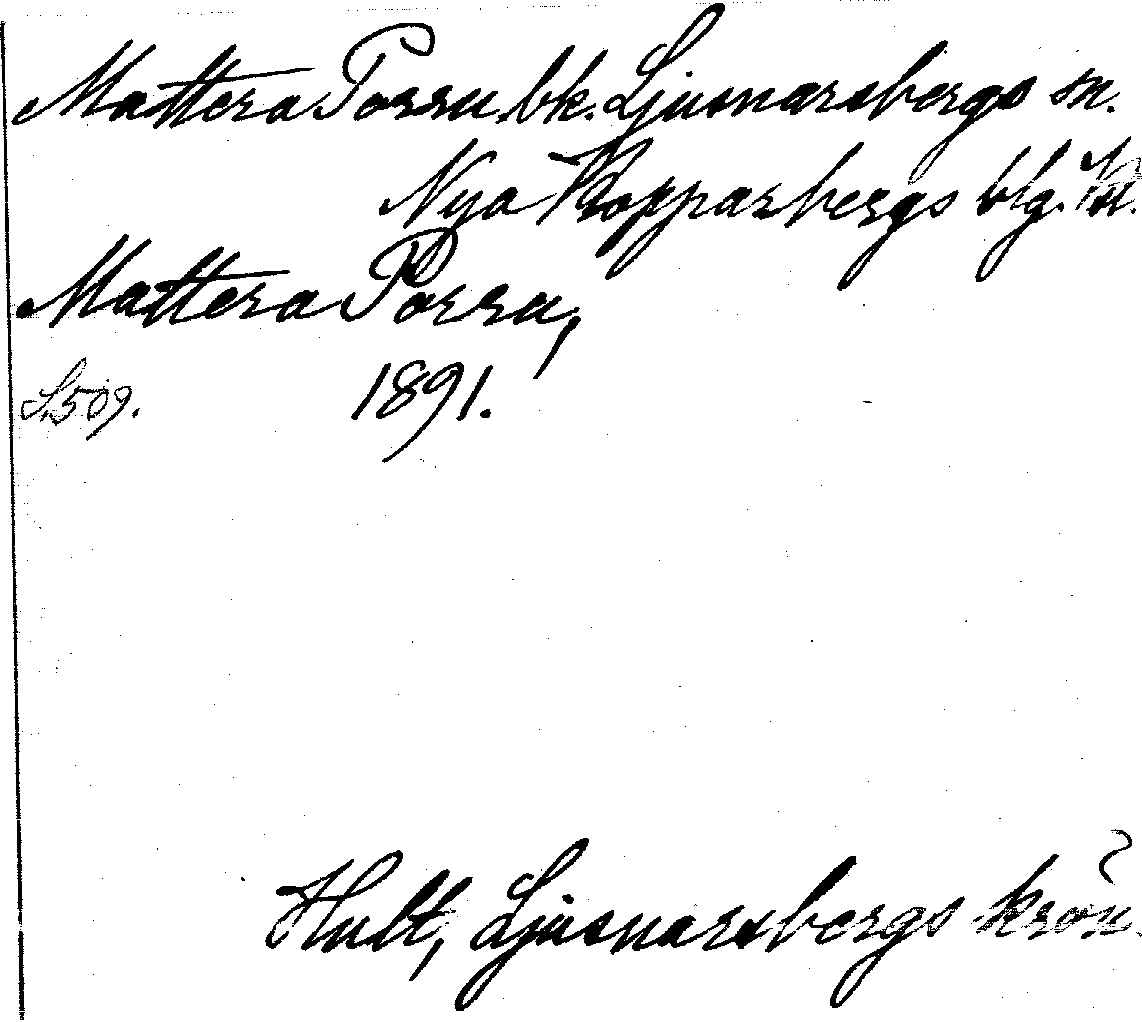 Mattera Porru, bk. Ljusnarsbergs sn.
Nya Kopparbergs blg.
Mattera Porru,
S. 509. 1891.
Hult, Ljusnarsbergs krön.